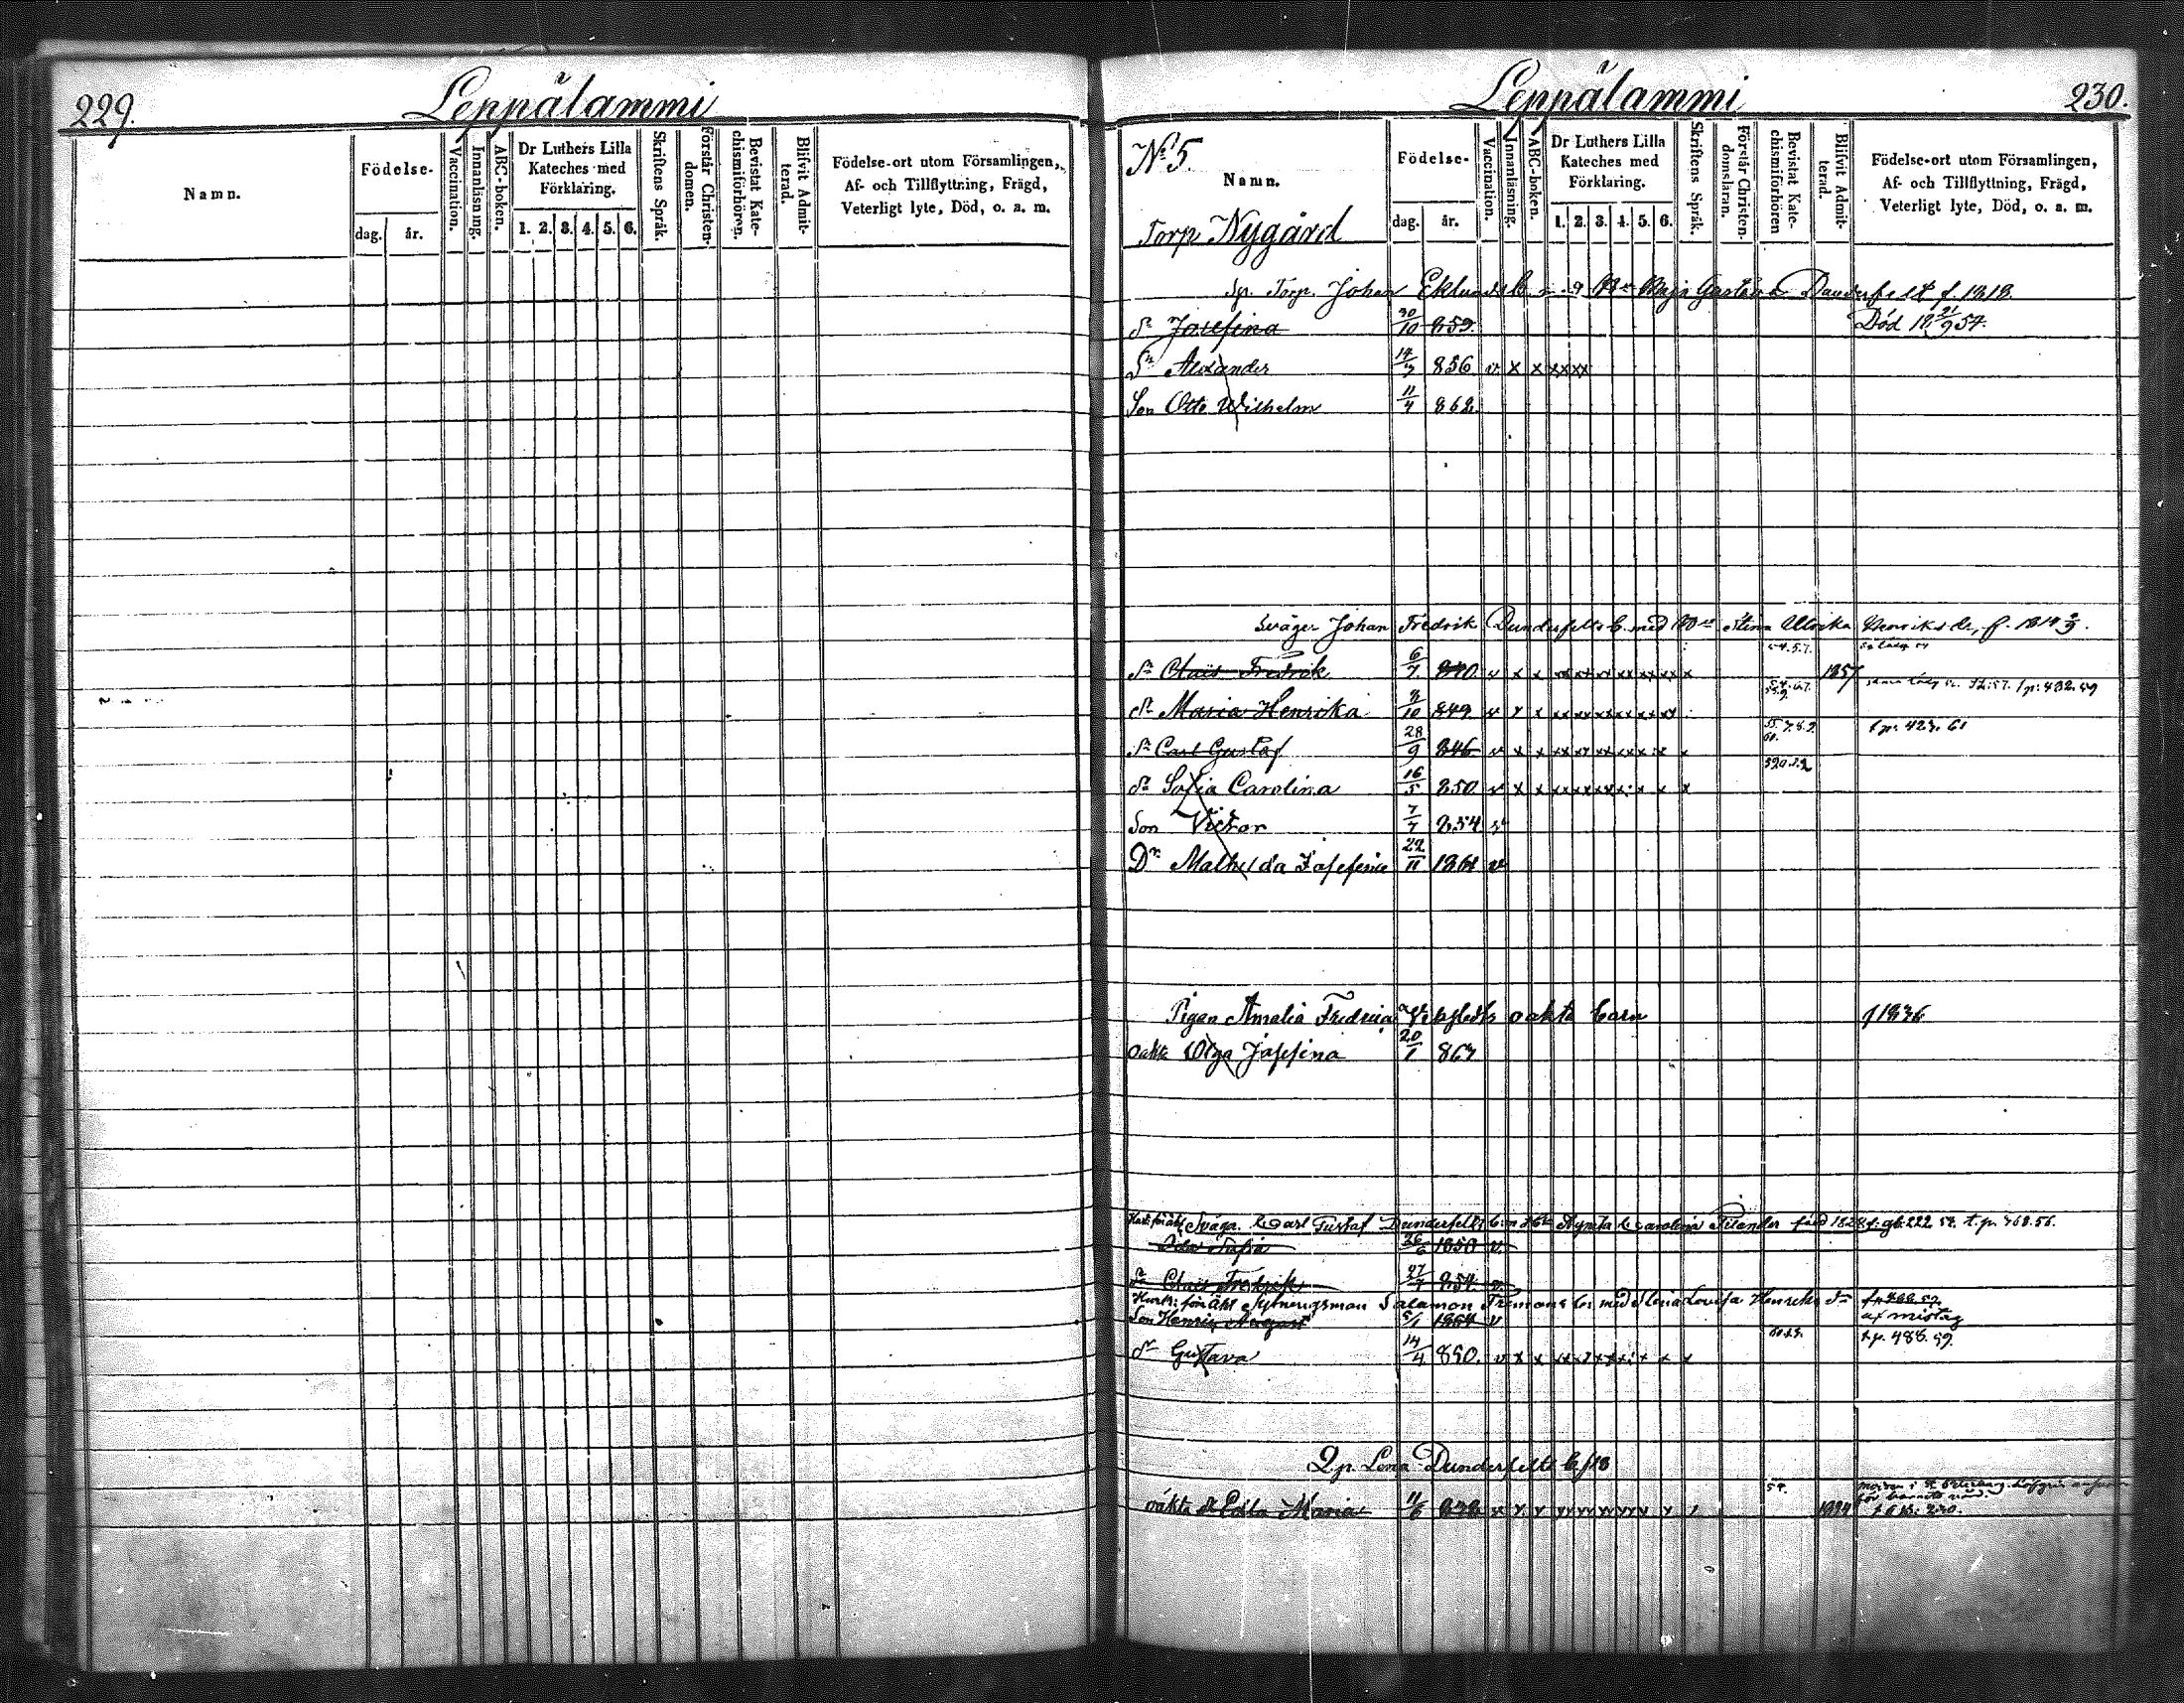 229.
Leppälammi
Namn.
Födelse-
dag. år.
Vaccination.
Innanläsning.
ABC-boken.
Dr Luthers Lilla Kateches med Förklaring.
1. 2. 3. 4. 5. 6.
Skriftens Språk.
Förstår Christendomen.
Bevistat Katechismiförhören.
Blifvit Admitterad.
Födelse-ort utom Församlingen,
Af- och Tillflyttning, Frägd,
Veterligt lyte, Död, o. a. m.
Leppälammi
230.
No 5.
Namn.
Torp Nygård
Födelse-
dag. år.
Vaccination.
Innanläsning.
ABC-boken.
Dr Luthers Lilla Kateches med Förklaring.
1. 2. 3. 4. 5. 6.
Skriftens Språk.
Förstår Christendomsläran.
Bevistat Katechismiförhören
Blifvit Admitterad.
Födelse-ort utom Församlingen,
Af- och Tillflyttning, Frägd,
Veterligt lyte, Död, o. a. m.
Torp. Johan Eklunds b. Maja Gustava Dunderfelt f. 1818.
Dr Josefina 30/10 859. Död 18 21/9 57.
Sn Alexander 14/3 856 v x x xx xx
Son Otto Wilhelm 11/4 862
Svåger Johan Fredrik Dunderfelts b. med Stina Ulrika Henriks dr, f. 1814
54.57.
Sn Claës Fredrik 6/7 840 v x x xx xx xx xx xx x x 1857
Dr Maria Henrika 3/10 849 v x x p. 432. 59
Sn Carl Gustaf 28/9 846 v x x t p. 423. 61
Dr Sofia Carolina 16/5 850 v x x
Son Victor 7/7 854 v
Dr Mathilda Josefina 22/11 1861 v
Pigan Amalia Fredrica oäkta barn f 1836
oäkta Olga Josefina 20/1 867
Svåg. Carl Gustaf Dunderfelts b. Agneta Carolina Pilander född 1828 f. gb. 222 52. t. p. 768. 56.
Ida Sofia 26/6 1850 v.
Sn Claës Fredrik 27/7 854. v.
Salamon Fremans b. med Lena Lovisa Henriks dr
Son Henric August 5/1 1864 v af mistag
Dr Gustava 14/4 850. v x x t p. 488. 59.
Qp. Lena Dunderfelts b. f 18
54.
oäkta dr Edla Maria 11/6 838 v x x